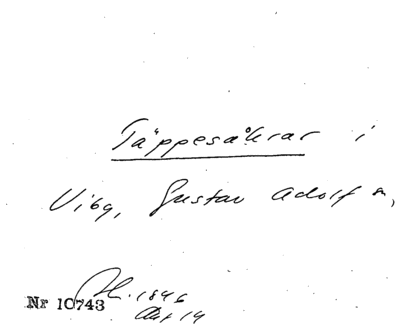 Täppesåkrar i
Viby, Gustav Adolf sn,
1846
Akt 14
Nr 10743